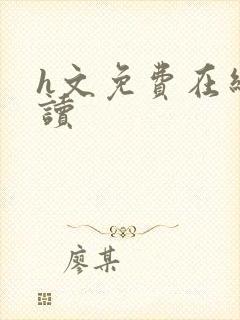 h文免费在線
讀
廖某